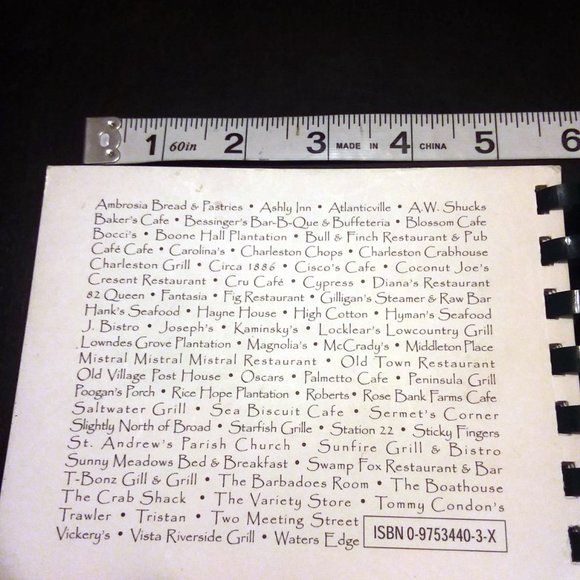 1 60in 2 3 MADE IN 4 CHINA 5 6
Ambrosia Bread & Pastries • Ashly Inn • Atlanticville • A.W. Shucks
Baker's Cafe • Bessinger's Bar-B-Que & Buffeteria • Blossom Cafe
Bocci's • Boone Hall Plantation • Bull & Finch Restaurant & Pub
Café Cafe • Carolina's • Charleston Chops • Charleston Crabhouse
Charleston Grill • Circa 1886 • Cisco's Cafe • Coconut Joe's
Cresent Restaurant • Cru Café • Cypress • Diana's Restaurant
82 Queen • Fantasia • Fig Restaurant • Gilligan's Steamer & Raw Bar
Hank's Seafood • Hayne House • High Cotton • Hyman's Seafood
J. Bistro • Joseph's • Kaminsky's • Locklear's Lowcountry Grill
Lowndes Grove Plantation • Magnolia's • McCrady's • Middleton Place
Mistral Mistral Mistral Restaurant • Old Town Restaurant
Old Village Post House • Oscars • Palmetto Cafe • Peninsula Grill
Poogan's Porch • Rice Hope Plantation • Roberts • Rose Bank Farms Cafe
Saltwater Grill • Sea Biscuit Cafe • Sermet's Corner
Slightly North of Broad • Starfish Grille • Station 22 • Sticky Fingers
St. Andrew's Parish Church • Sunfire Grill & Bistro
Sunny Meadows Bed & Breakfast • Swamp Fox Restaurant & Bar
T-Bonz Gill & Grill • The Barbadoes Room • The Boathouse
The Crab Shack • The Variety Store • Tommy Condon's
Trawler • Tristan • Two Meeting Street
Vickery's • Vista Riverside Grill • Waters Edge
ISBN 0-9753440-3-X